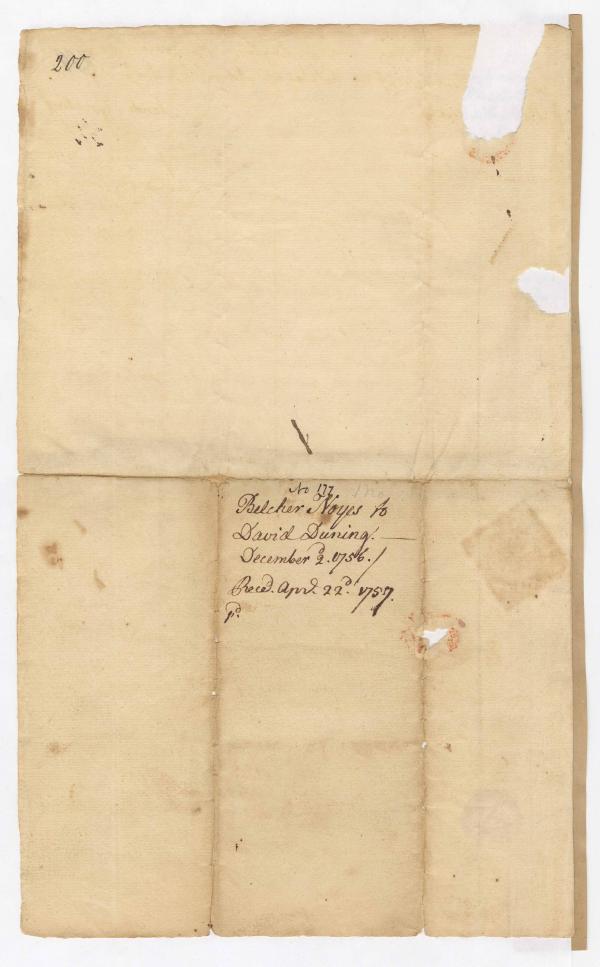 200
No 177
Belcher Noyes to
David Duning.
December 2d. 1756./
Reced. Apr. 22d. 1757.
pd.